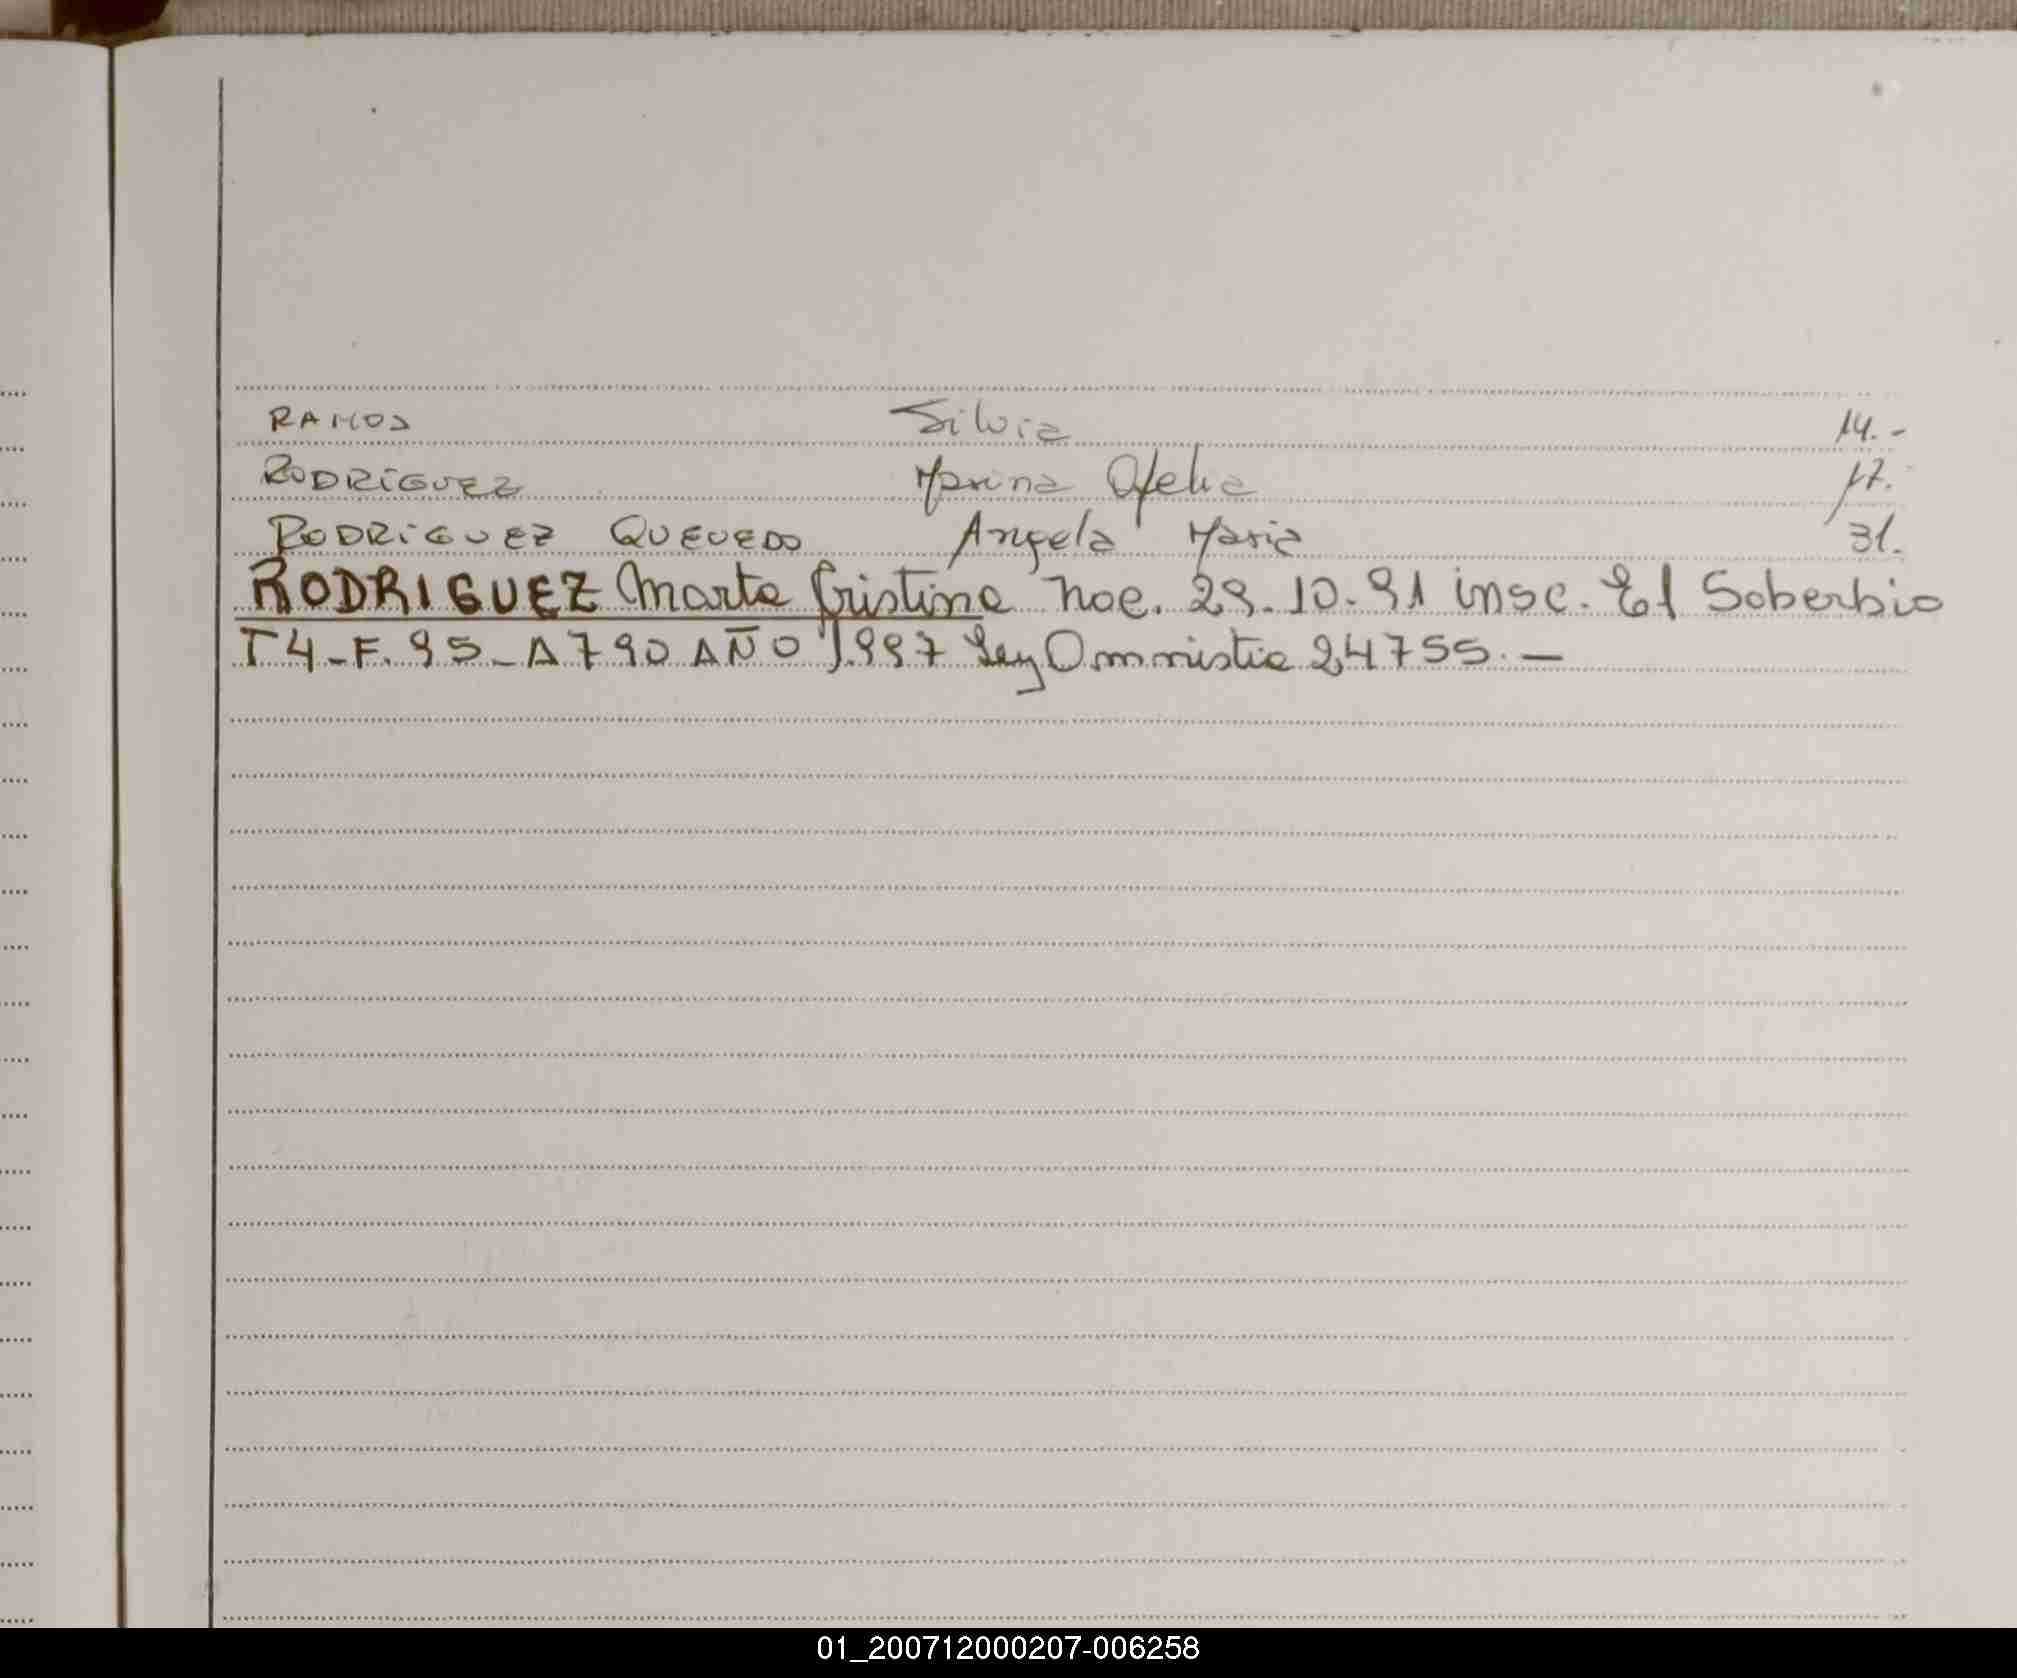 RAMOS Silvia 14.-
RODRIGUEZ Marina Ofelia 17.
RODRIGUEZ QUEVEDO Angela Maria 31.
RODRIGUEZ Marta Cristina Nac. 29-10-91 insc. El Soberbio
T4-F.95-A790 AÑO 1.997 Ley Ommistia 24755.—
01_200712000207-006258